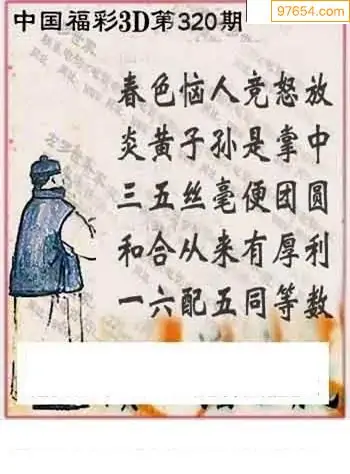 中国福彩3D第320期
97654.com
春色恼人竞怒放
炎黄子孙是掌中
三五丝毫便团圆
和合从来有厚利
一六配五同等数